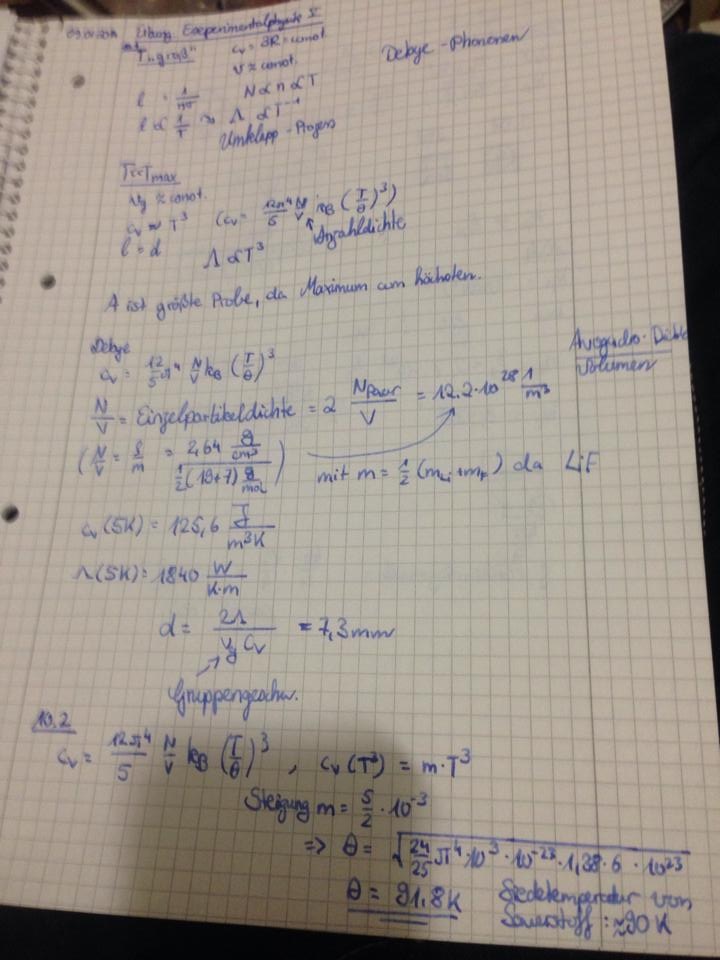 Übung Experimentalphysik V
T "groß" c_v = 3R = const
v ≈ const. Debye - Phononen
l = 1/nσ N ∝ n ∝ T
l ∝ 1/T => Λ ∝ T⁻¹
Umklapp - Prozess
T<<T_max
v_g ≈ const.
c_v ∝ T³ (c_v = 12π⁴/5 N/V k_B (T/θ)³)
l = d Λ ∝ T³ Anzahldichte
A ist größte Probe, da Maximum am höchsten.
Debye
c_v = 12/5 π⁴ N/V k_B (T/θ)³ Avogadro · Dichte
Volumen
N/V = Einzelpartikeldichte = 2 N_Paar/V = 12.2·10²⁸ 1/m³
(N/V = ρ/m = 2,64 g/cm³ / ½(19+7) g/mol) mit m = ½ (m_Li + m_F) da LiF
c_v (5K) = 125,6 J/m³K
Λ(5K) = 1840 W/K·m
d = 2Λ/v_g c_v = 7,3mm
Gruppengeschw.
10.2
c_v = 12π⁴/5 N/V k_B (T/θ)³ , c_v (T³) = m·T³
Steigung m = 5/2 · 10⁻³
=> θ = √24/25 π⁴·10³·10⁻²³·1,38·6·10²³
θ = 91.8K Siedetemperatur von
Sauerstoff: ≈90K